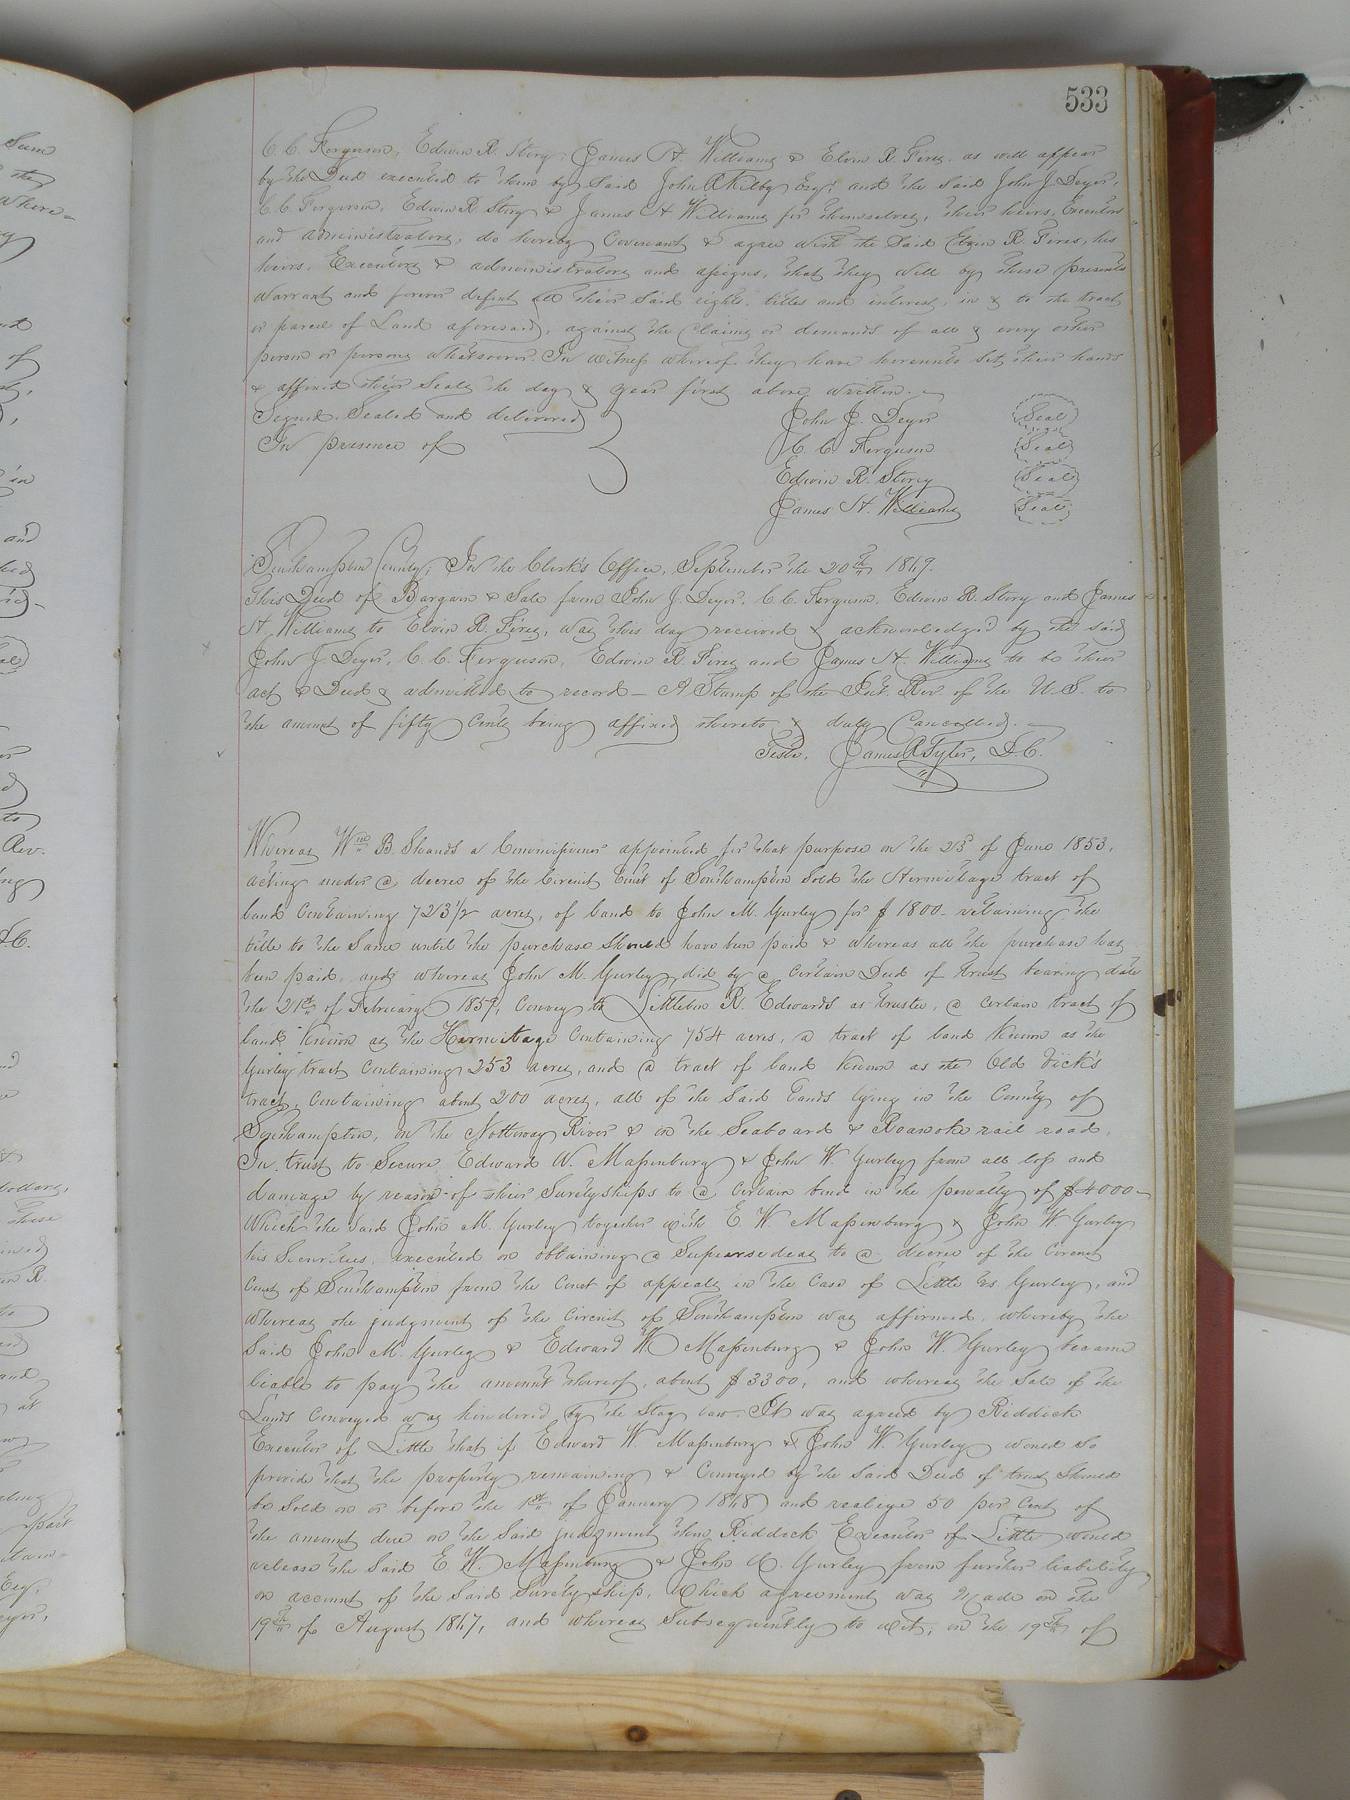 533
C. C. Ferguson, Edwin R. Story, James H. Williams & Elvin R. Ferez. as will appear
by the Deed executed to them by said John R Kilby Esq. and the said John J. Deyer,
C. C. Ferguson, Edwin R. Story & James H Williams for themselves, their heirs, Executors
and administrators, do hereby Covenant & agree with the said Elvin R. Ferez, his
heirs, Executors & administrators and assigns, that they will by these presents
warrant and forever defend all their said rights, titles and interest, in & to the tract
or parcel of Land aforesaid, against the claims or demands of all & every other
person or persons whatsoever. In witness whereof they have hereunto set their hands
& affixed their Seals the day & year first above written.
Signed, Sealed and delivered
In presence of
John J. Deyer Seal
C. C. Ferguson Seal
Edwin R. Story Seal
James H. Williams Seal
Southampton County; In the Clerk's Office, September the 20th
This Deed of Bargain & Sale from John J. Deyer, C. C. Ferguson, Edwin R. Story and James
H. Williams to Elvin R. Ferez, was this day received & acknowledged by the said
John J. Deyer, C. C. Ferguson, Edwin R. Ferez and James H. Williams to be their
act & Deed & admitted to record – A Stamp of the Int. Rev. of the U. S. to
the amount of fifty Cents being affixed thereto & duly Cancelled. –
Teste, James R Tyler, D. C.
Whereas Wm B. Shands a Commissioner appointed for that purpose on the 23 of June 1853,
acting under a decree of the Circuit Court of Southampton sold the Hermitage tract of
land Containing 723 1/2 acres, of land to John M. Gurley for $1800 – retaining the
title to the same until the purchase should have been paid & whereas all the purchase has
been paid, and whereas John M. Gurley did by a certain Deed of trust bearing date
the 21st of February 1859, Convey to Littleton R. Edwards as trustee, a certain tract of
land known as the Hermitage Containing 754 acres, a tract of land known as the
Gurley tract Containing 253 acres, and a tract of land known as the Old Dick's
tract, Containing about 200 acres, all of the said Lands lying in the County of
Southampton, on the Nottoway River & on the Seaboard & Roanoke rail road,
In trust to Secure Edward W. Massenburg & John W. Gurley from all loss and
damage by reason of their Suretyships to a certain bond in the penalty of $4000 –
which the said John M. Gurley together with E. W. Massenburg & John W. Gurley
his Securities, executed on obtaining a Supersedeas to a decree of the Circuit
Court of Southampton from the Court of appeals in the case of Little vs Gurley, and
whereas the judgment of the Circuit of Southampton was affirmed, whereby the
said John M. Gurley & Edward W Massenburg & John W. Gurley became
liable to pay the amount thereof, about $3300, and whereas the Sale of the
Lands Conveyed was hindered by the Stay law. It was agreed by Riddick
Executor of Little that if Edward W. Massenburg & John W. Gurley would so
provide that the property remaining & Conveyed by the said Deed of trust should
be sold on or before the 1st of January 1868 and realize 50 per Cent of
the amount due on the said judgment then Riddick Executor of Little would
release the said E. W. Massenburg & John W. Gurley from further liability
on account of the said Suretyship, which agreement was made on the
19th of August 1867, and whereas Subsequently to wit, on the 19th of